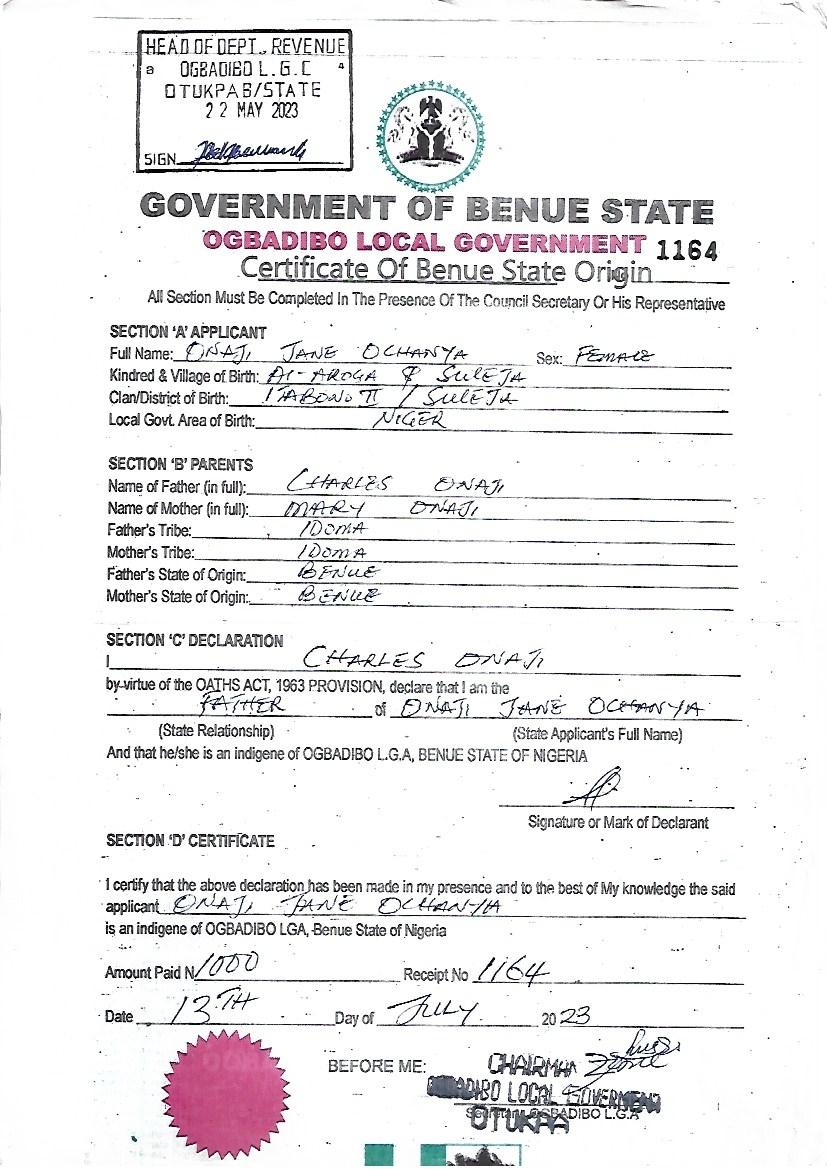 HEAD OF DEPT., REVENUE
OGBADIBO L.G.C
OTUKPA B/STATE
22 MAY 2023
SIGN
GOVERNMENT OF BENUE STATE
OGBADIBO LOCAL GOVERNMENT 1164
Certificate Of Benue State Origin
All Section Must Be Completed In The Presence Of The Council Secretary Or His Representative
SECTION 'A' APPLICANT
Full Name: ONAJI JANE OCHANYA Sex: FEMALE
Kindred & Village of Birth: AI-AROGA & SULEJA
Clan/District of Birth: ITABONO II / SULEJA
Local Govt. Area of Birth: NIGER
SECTION 'B' PARENTS
Name of Father (in full): CHARLES ONAJI
Name of Mother (in full): MARY ONAJI
Father's Tribe: IDOMA
Mother's Tribe: IDOMA
Father's State of Origin: BENUE
Mother's State of Origin: BENUE
SECTION 'C' DECLARATION
I CHARLES ONAJI
by virtue of the OATHS ACT, 1963 PROVISION, declare that I am the
FATHER of ONAJI JANE OCHANYA
(State Relationship) (State Applicant's Full Name)
And that he/she is an indigene of OGBADIBO L.G.A, BENUE STATE OF NIGERIA
Signature or Mark of Declarant
SECTION 'D' CERTIFICATE
I certify that the above declaration has been made in my presence and to the best of My knowledge the said
applicant ONAJI JANE OCHANYA
is an indigene of OGBADIBO LGA, Benue State of Nigeria
Amount Paid N 1000 Receipt No 1164
Date 13TH Day of JULY 2023
BEFORE ME: CHAIRMAN
OGBADIBO LOCAL GOVERMENT
Secretary OGBADIBO L.G.A
OTUKPA